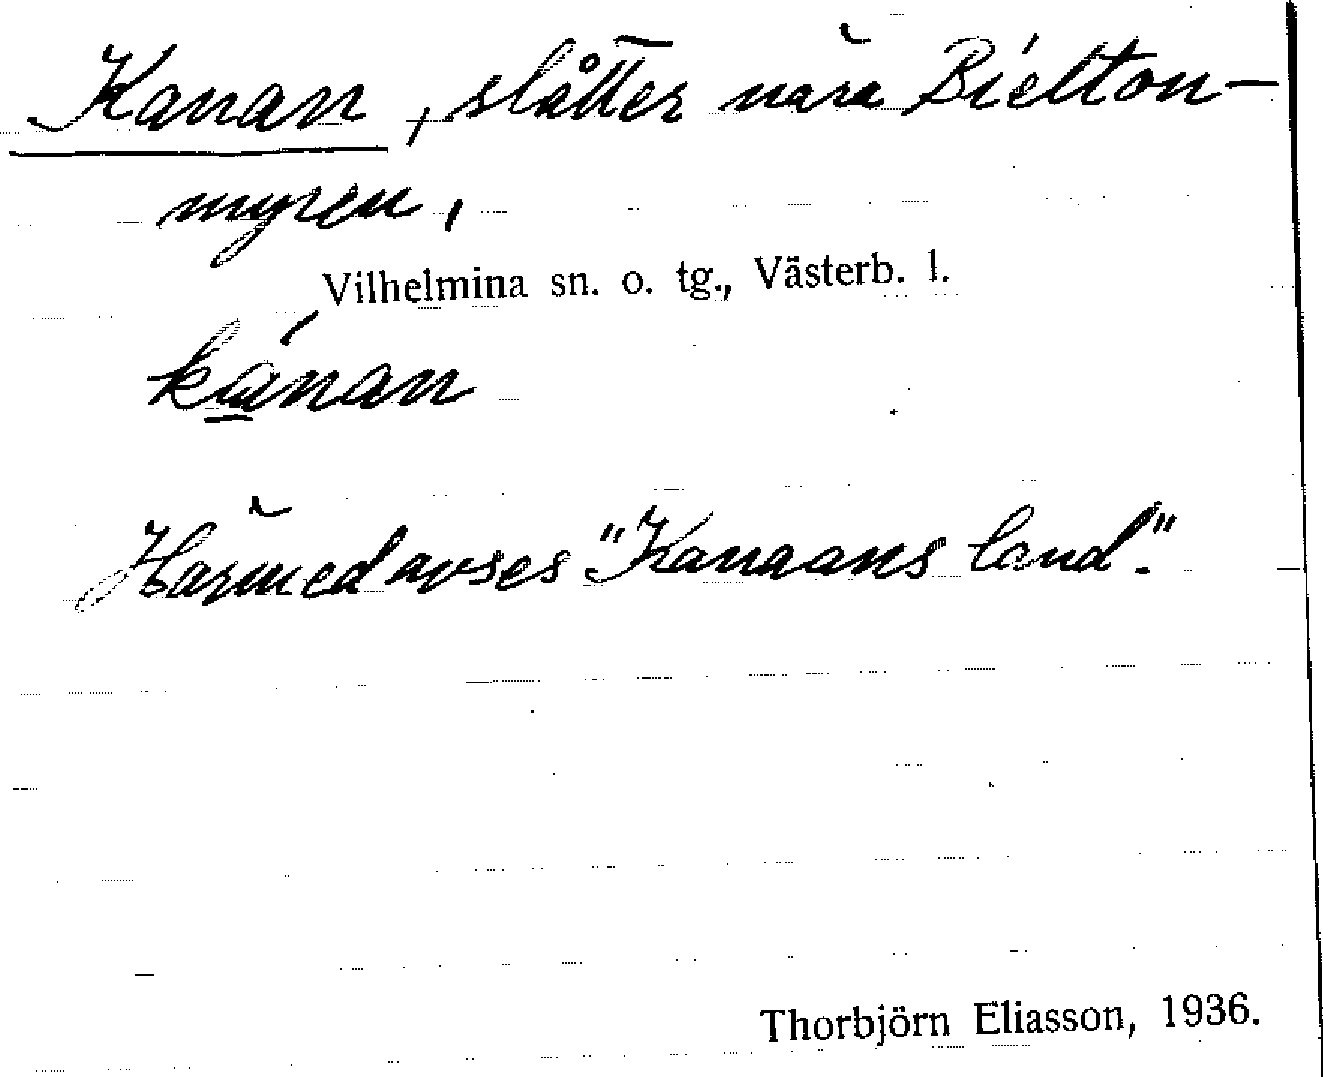 Kanan, slåtter nära Bielton-
myren,
Vilhelmina sn. o. tg., Västerb. l.
kánan
Härmed avses "Kanaans land".
Thorbjörn Eliasson, 1936.